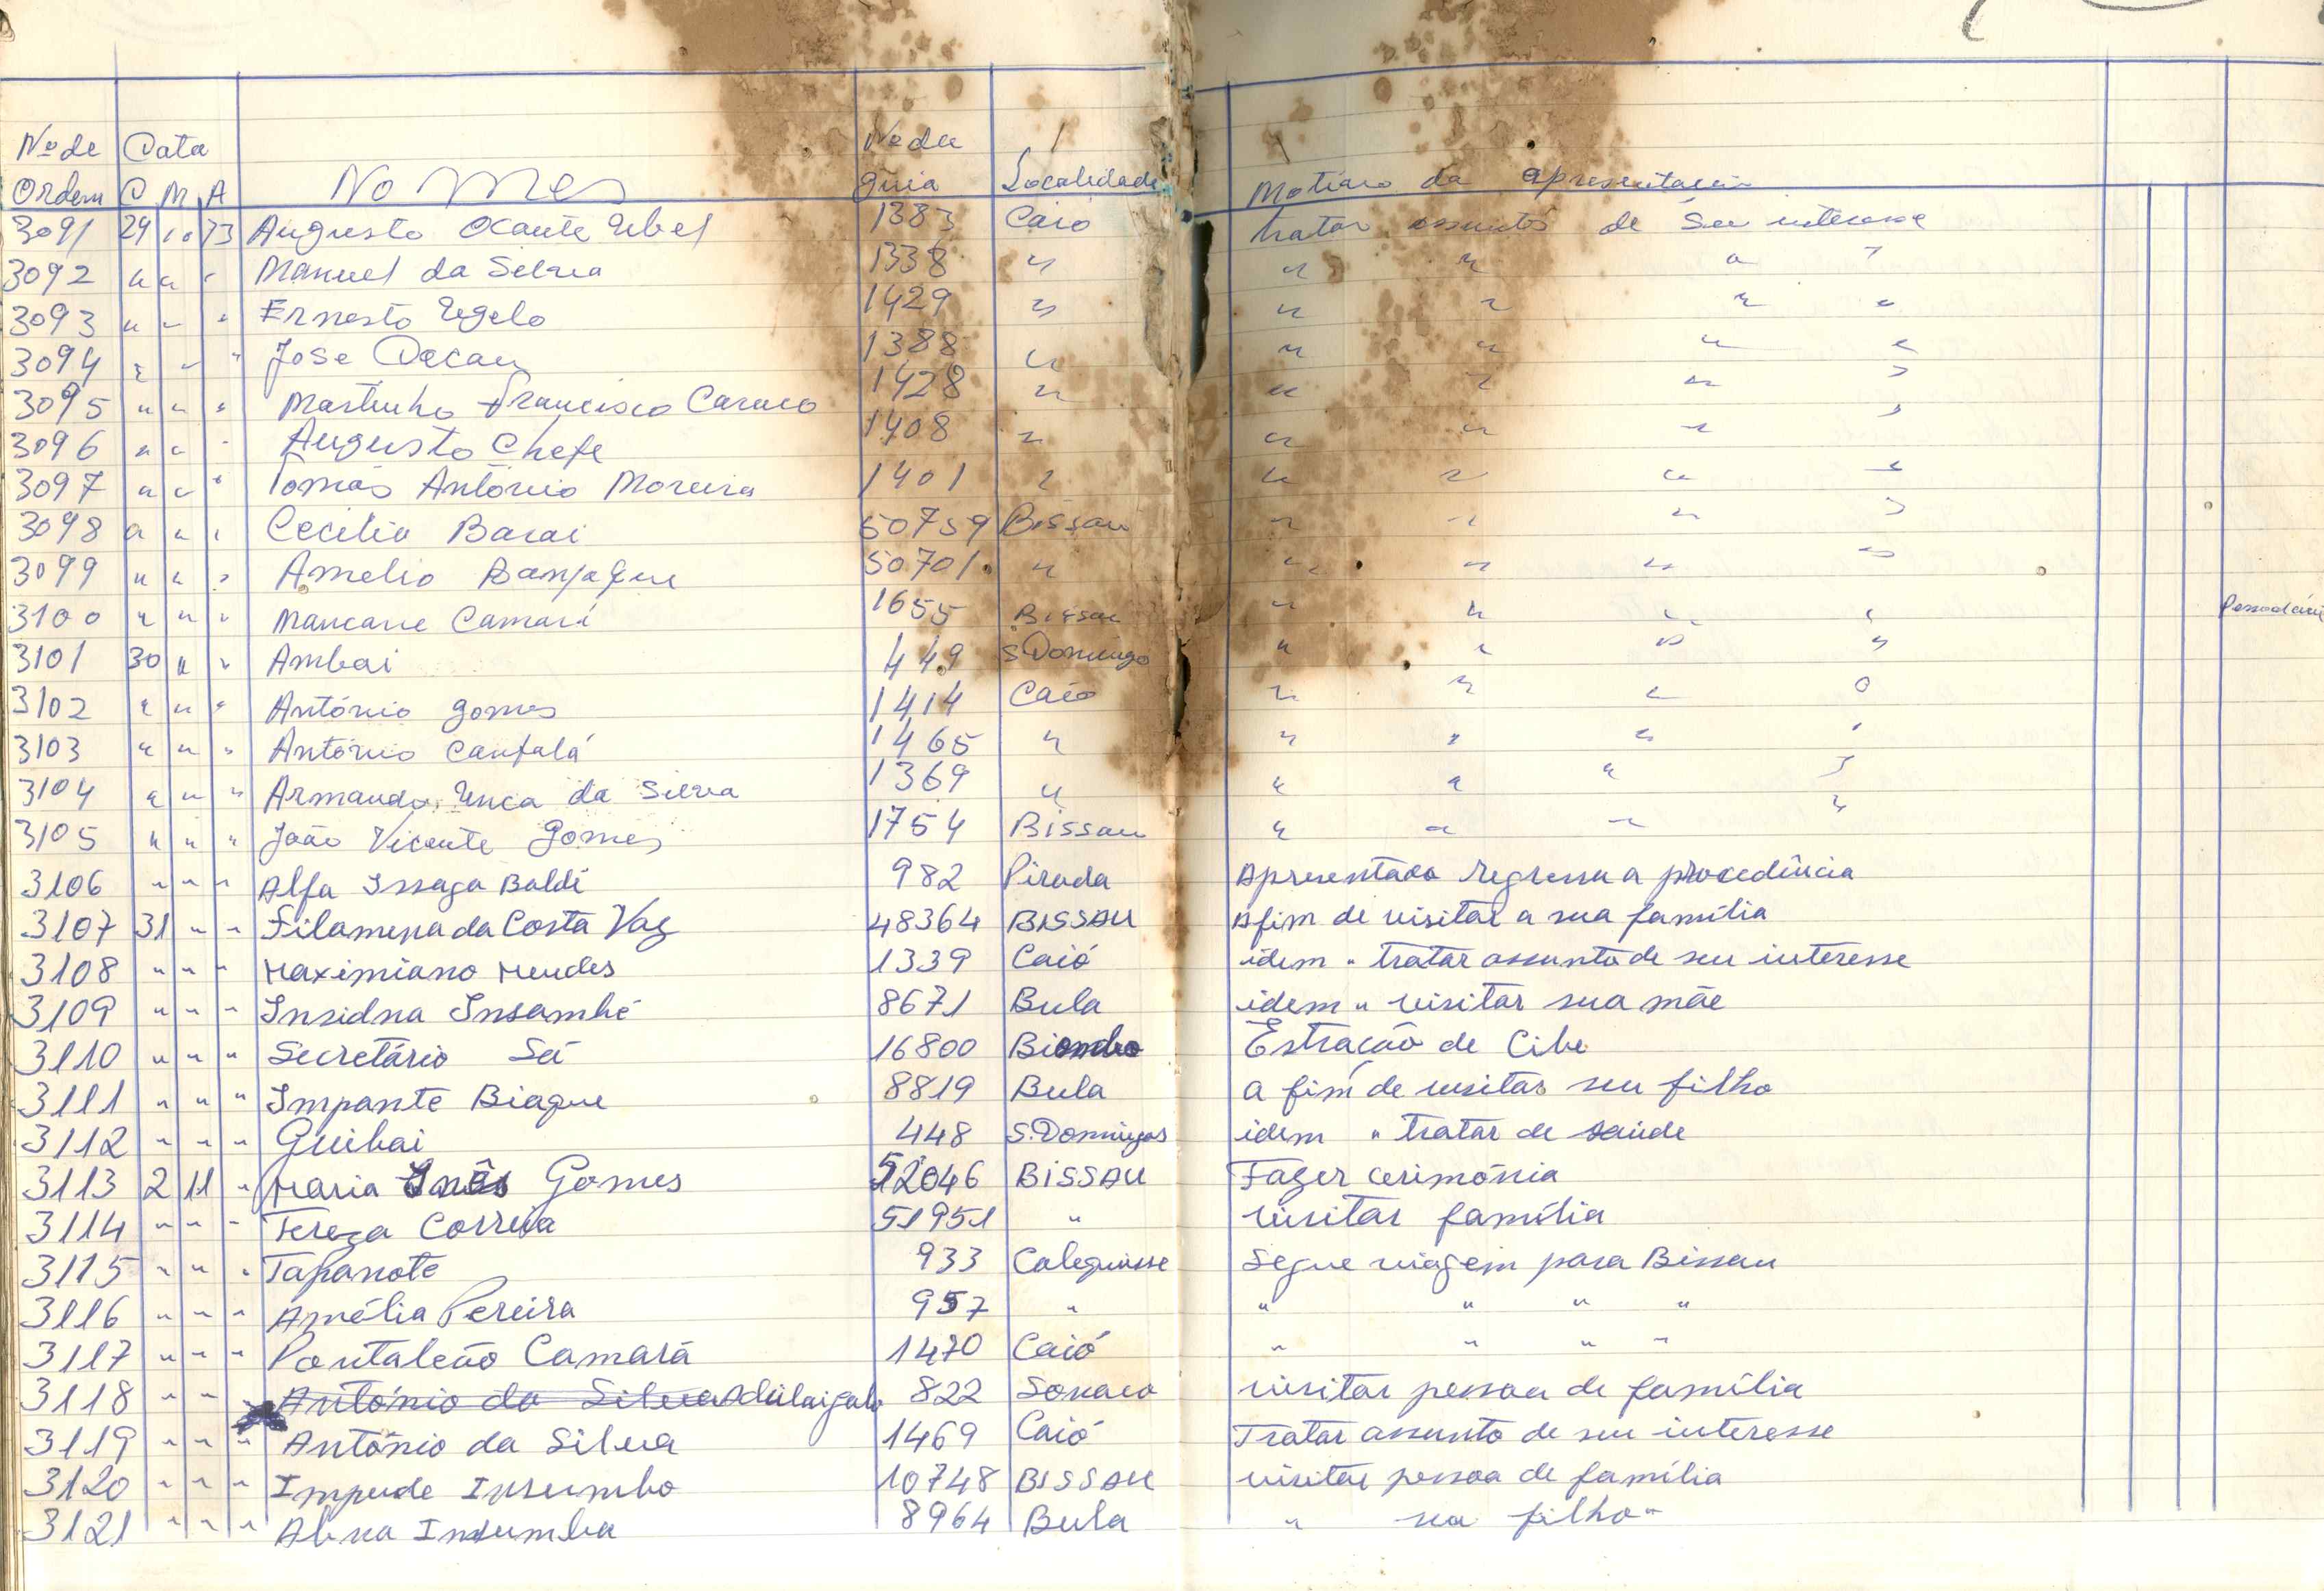 Nº de Data Nº da
Ordem D M A Nomes guia Localidade Motivo da apresentação
3091 29 10 73 Augusto Ocante Ubel 1383 Caió tratar assuntos de seu interesse
3092 " " " Manuel da Silva 1338 " " " " "
3093 " " " Ernesto 1429 " " " " "
3094 " " " Jose 1388 " " " " "
3095 " " " Martinho Francisco 1428 " " " " "
3096 " " " Augusto Chefe 1408 " " " " "
3097 " " " Tomás António Moreira 1401 " " " " "
3098 " " " Cecilia Barai 50759 Bissau " " " "
3099 " " " Amelio Banjaque 50701 " " " " "
3100 " " " Mancane Camará 1655 Bissau " " " "
3101 30 " " Ambai 449 S Domingo " " " "
3102 " " " António gomes 1414 Caió " " " "
3103 " " " António Canfalá 1465 " " " " "
3104 " " " Armando Unca da Silva 1369 " " " " "
3105 " " " João Vicente Gomes 1754 Bissau " " " "
3106 " " " Alfa Issaga Baldé 982 Pirada Apresentado regressa a procedência
3107 31 " " Filamena da Costa Vaz 48364 BISSAU Afim de visitar a sua família
3108 " " " Maximiano Mendes 1339 Caió idem " tratar assunto de seu interesse
3109 " " " Insidna Insambé 8671 Bula idem " visitar sua mãe
3110 " " " Secretário Sá 16800 Biombo Estração de Cibe
3111 " " " Impante Biague 8819 Bula a fim de visitar seu filho
3112 " " " Guibai 448 S. Domingos idem " tratar de saúde
3113 2 11 " Maria Inês Gomes 52046 BISSAU Fazer cerimónia
3114 " " " Tereza Correia 51951 " visitar família
3115 " " " Tapanote 933 Calequisse Segue viagem para Bissau
3116 " " " Amélia Pereira 957 " " " " "
3117 " " " Pantaleão Camará 1470 Caió " " " "
3118 " " António da Silva 822 Sonaco visitar pessoa de família
3119 " " " António da Silva 1469 Caió Tratar assunto de seu interesse
3120 " " " Impude Insumbo 10748 BISSAU visitar pessoa de família
3121 " " " Abna Insumba 8964 Bula " seu filho "